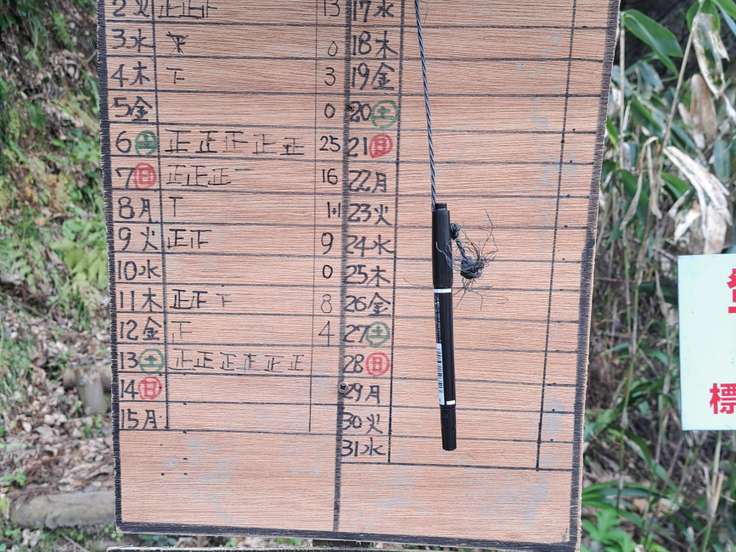 2火 正正正 13
3水 0
4木 下 3
5金 0
6土 正正正正正 25
7日 正正正一 16
8月 丅
9火 正正 9
10水 0
11木 正正下 8
12金 正 4
13土 正正正正正正
14日
15月
17水
18木
19金
20土
21日
22月
23火
24水
25木
26金
27土
28日
29月
30火
31水
標